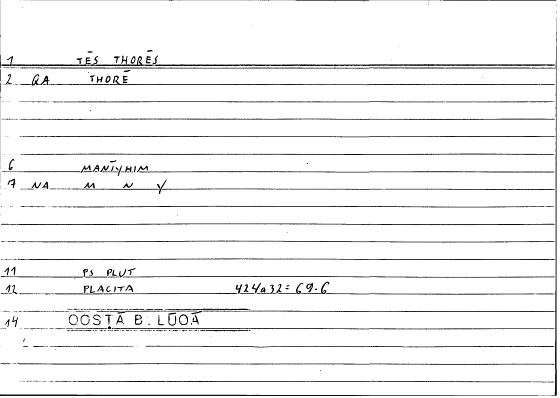 1 TĒS THORĒS
2 QA THORĒ
6 MANĪYHIM
7 NA M N Y
11 PS PLUT
12 PLACITA 424a32=69.6
14 OOSṬĀ B. LŪOĀ